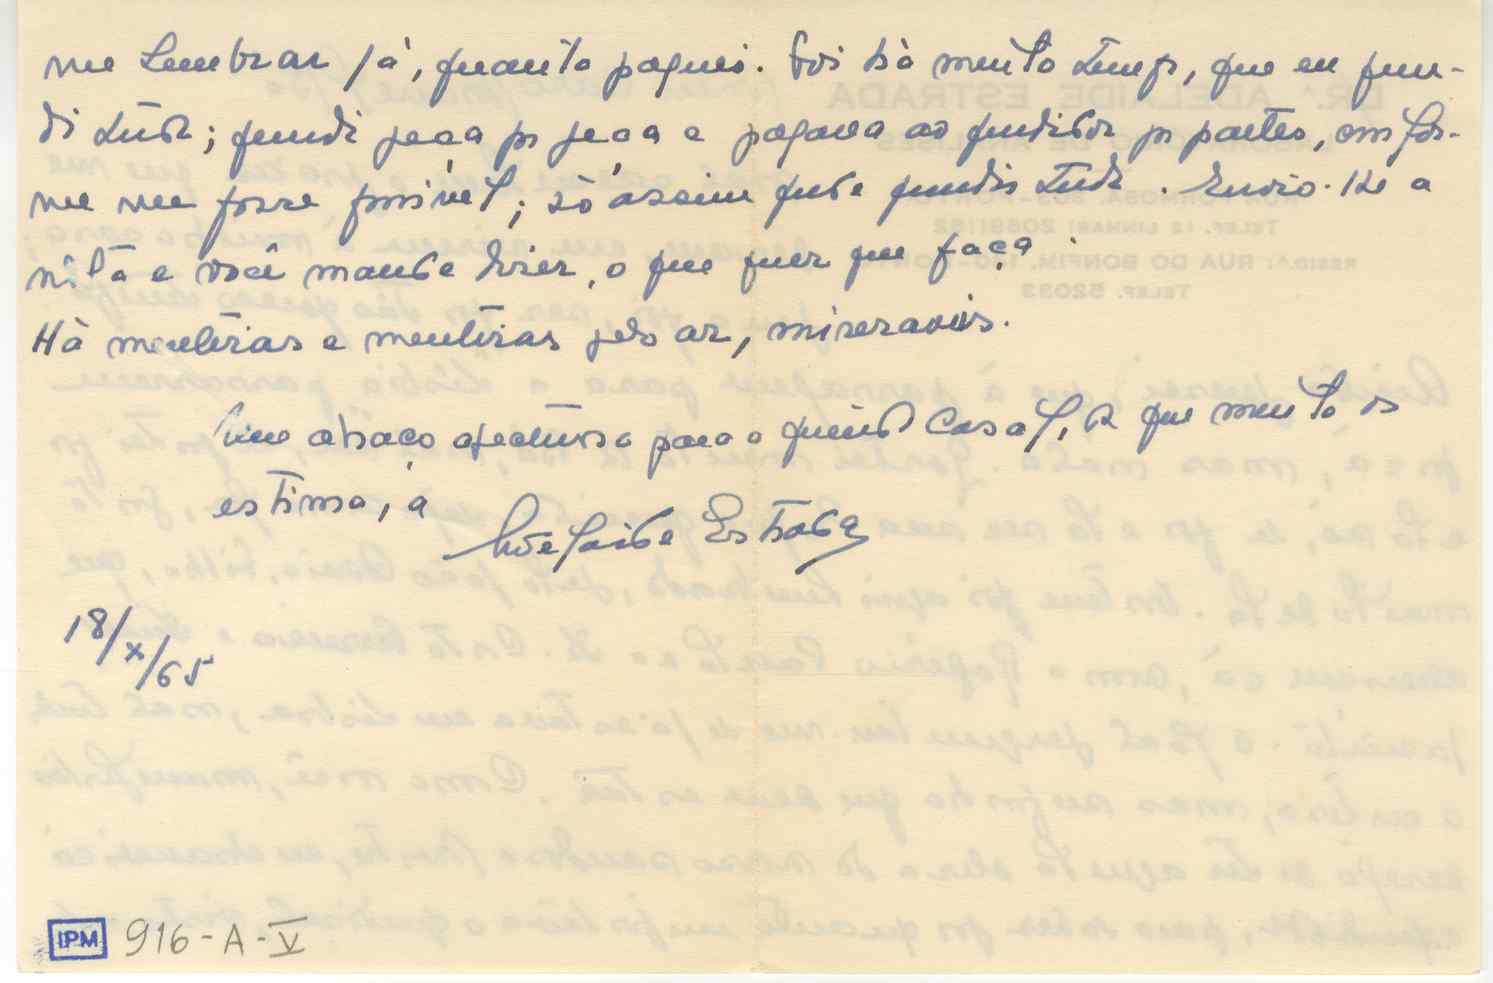 me lembrar já, quanto paguei. Foi há muito tempo, que eu fun-
di tudo; fundi peça por peça e pagava ao fundidor por partes, confor-
me me fosse possível; só assim pude fundir tudo. Envio-lhe a
nota e você mande dizer, o que quer que faça.
Há mentiras e mentiras pelo ar, miseráveis.
Um abraço afectuoso para o querido Casal, de que muito os
estima, a
Adelaide Estrada
18/X/65
IPM 916-A-V